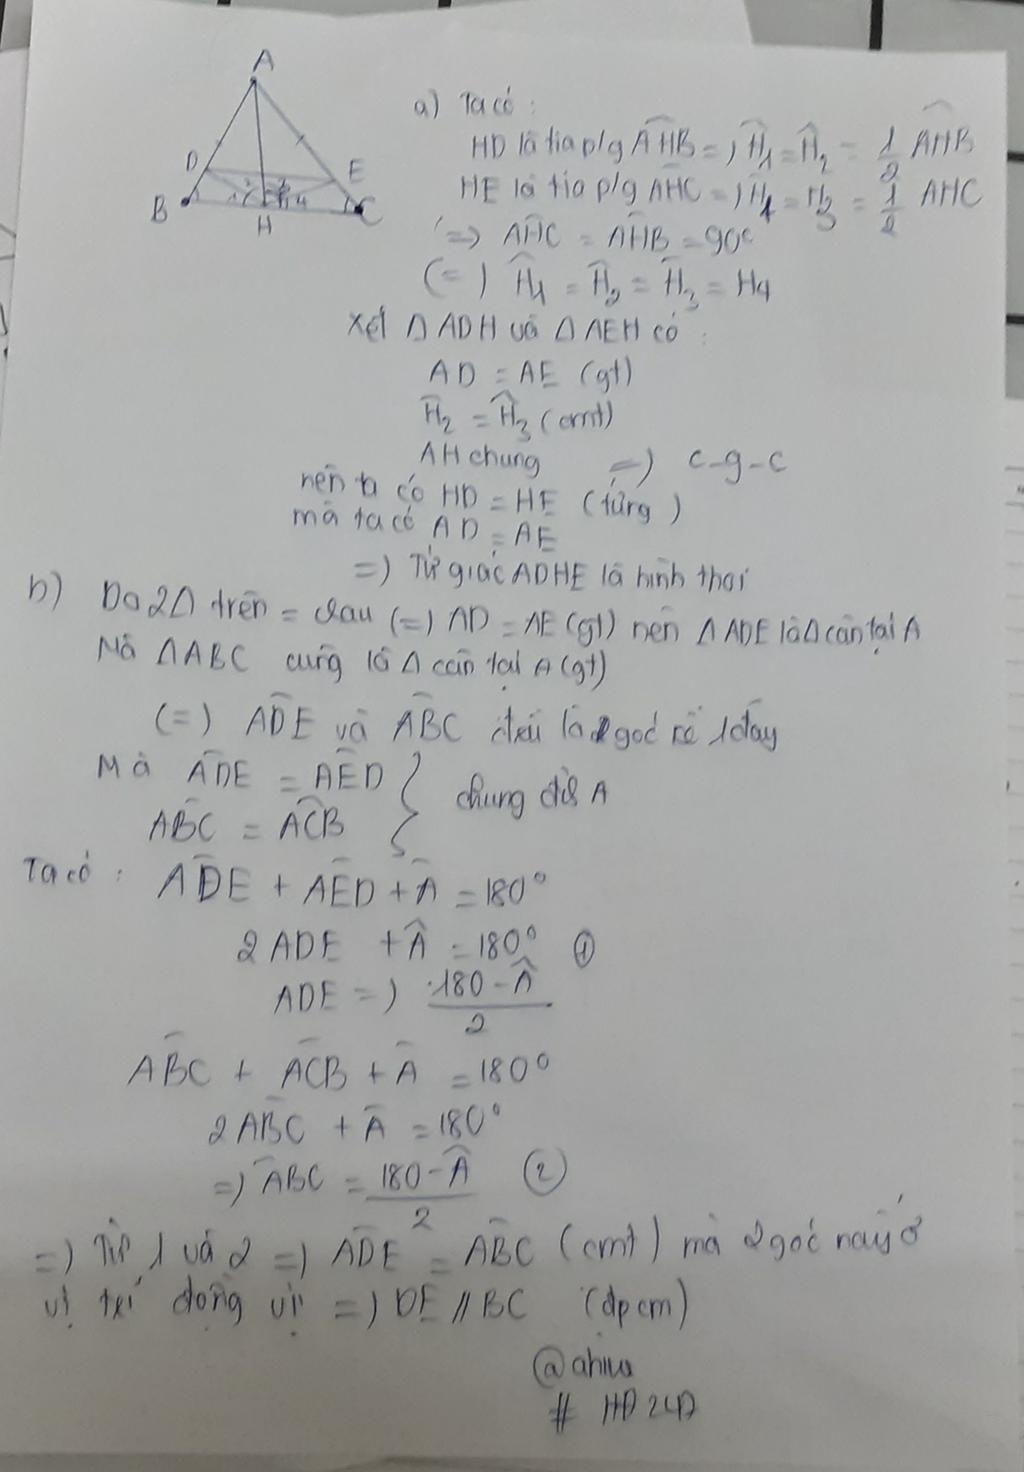 A
D
E
B
C
H
a) Ta có :
HD là tia p/g AHB =) H1 = H2 = 1/2 AHB
HE là tia p/g AHC =) H4 = H3 = 1/2 AHC
=) AHC = AHB = 90°
(=) H1 = H2 = H3 = H4
Xét Δ ADH và Δ AEH có :
AD = AE (gt)
H2 = H3 (cmt)
AH chung =) c-g-c
nên ta có HD = HE (tứng )
mà ta có AD = AE
=) Tứ giác ADHE là hình thoi
b) Do 2Δ trên = nhau (=) AD = AE (gt) nên Δ ADE là Δ cân tại A
Mà ΔABC cũng là Δ cân tại A (gt)
(=) ADE và ABC đều là góc kề 1 đáy
Mà ADE = AED } chung A
ABC = ACB
Ta có : ADE + AED + A = 180°
2 ADE + A = 180° ①
ADE =) 180 - A / 2
ABC + ACB + A = 180°
2 ABC + A = 180°
=) ABC = 180 - A / 2 ②
=) Từ 1 và 2 =) ADE = ABC (cmt) mà 2 góc này ở
vị trí đồng vị =) DE // BC (đpcm)